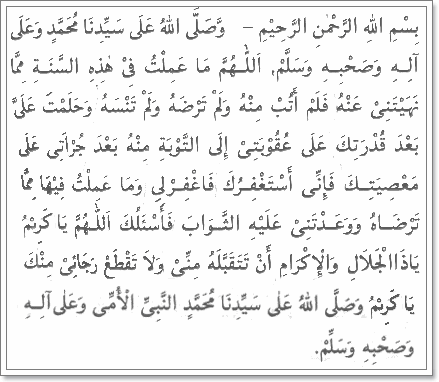 بِسْمِ اللهِ الرَّحْمٰنِ الرَّحِيْمِ – وَّصَلَّى اللهُ عَلَى سَيِّدِنَا مُحَمَّدٍ وَعَلَى
آلِهِ وَصَحْبِهِ وَسَلَّمْ, اَللّٰهُمَّ مَا عَمِلْتُ فِىْ هٰذِهِ السَّنَةِ مِمَّا
نَهَيْتَنِىْ عَنْهُ فَلَمْ أَتُبْ مِنْهُ وَلَمْ تَرْضَهُ وَلَمْ تَنْسَهُ وَحَلَمْتَ عَلَىَّ
بَعْدَ قُدْرَتِكَ عَلَى عُقُوْبَتِىْ إِلَى التَّوْبَةِ مِنْهُ بَعْدَ جُرْأَتِى عَلَى
مَعْصِيَتِكَ فَإِنِّى أَسْتَغْفِرُكَ فَاغْفِرْلِى وَمَا عَمِلْتُ فِيْهَا مِمَّا
تَرْضَاهُ وَوَعَدْتَنِىْ عَلَيْهِ الثَّوَابَ فَأَسْئَلُكَ اَللّٰهُمَّ يَا كَرِيْمُ
يَاذَاالْجَلَالِ وَالْإِكْرَامِ أَنْ تَتَقَبَّلَهُ مِنِّىْ وَلَا تَقْطَعْ رَجَائِىْ مِنْكَ
يَا كَرِيْمُ وَصَلَّى اللهُ عَلَى سَيِّدِنَا مُحَمَّدٍ النَّبِيِّ الْأُمِّى وَعَلَى آلِهِ
وَصَحْبِهِ وَسَلِّمْ.